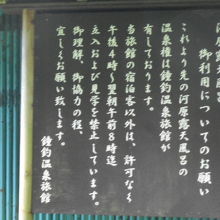 河原露天風呂
御利用についてのお願い
これより先の河原露天風呂の
温泉権は鐘釣温泉旅館が
有しております。
当旅館の宿泊客以外は、許可なく
午後4時〜翌朝午前8時迄
立入および見学を禁止しています。
御理解、御協力の程、
宜しくお願い致します。
鐘釣温泉旅館